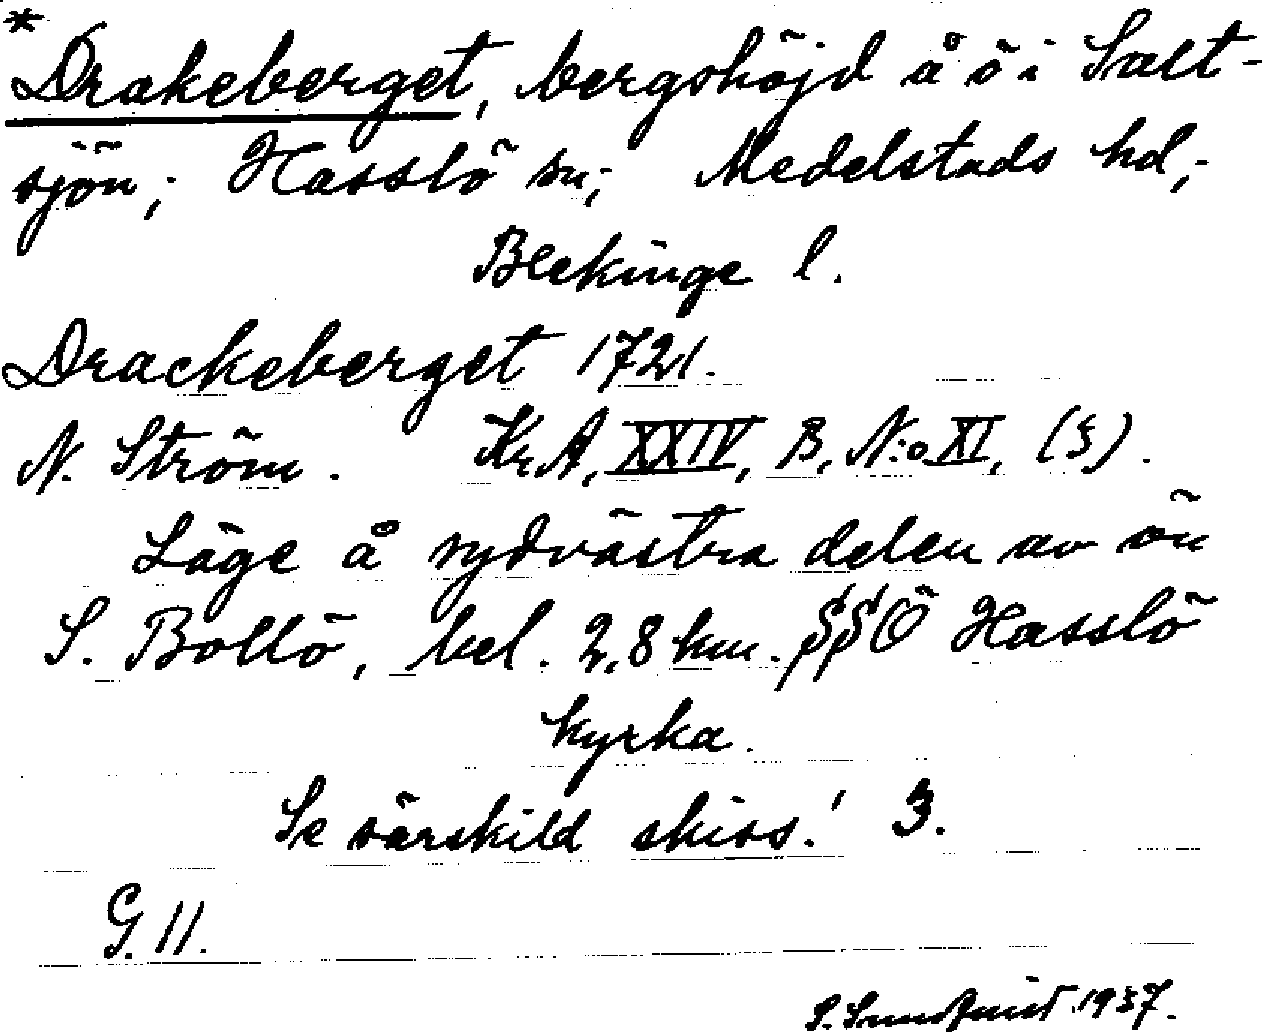 *
Drakeberget, bergshöjd å ö i Salt-
sjön; Hasslö sn; Medelstads hd,-
Blekinge l.
Drackeberget 1721.
N. Ström. Kr.A, XXIV, B, N:o XI, (3).
Läge å sydvästra delen av ön
S. Bollö, bel. 2,8 km. SSÖ Hasslö
kyrka.
Se särskild skiss! 3.
G. 11.
S. Sundquist 1937.